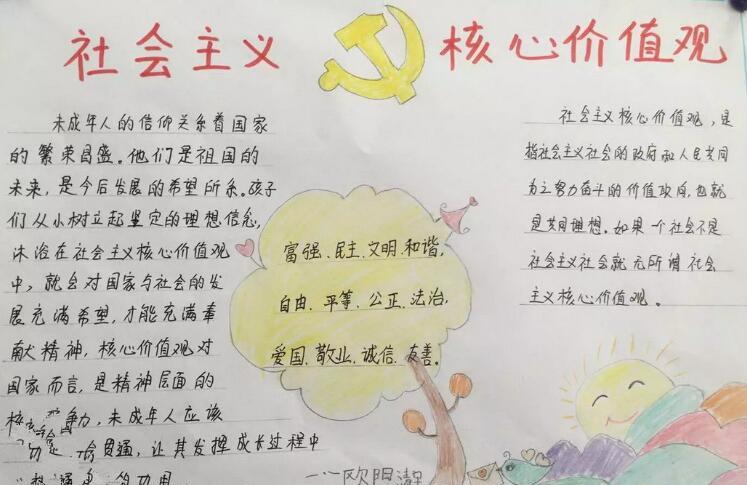 社会主义
核心价值观
未成年人的信仰关系着国家
的繁荣昌盛。他们是祖国的
未来，是今后发展的希望所系。孩子
们从小树立起坚定的理想信念，
沐浴在社会主义核心价值观
中，就会对国家与社会的发
展充满希望，才能充满奉
献精神，核心价值观对
国家而言，是精神层面的
力，未成年人应该
贯通，让其发挥成长过程中
的功用
富强、民主、文明、和谐，
自由、平等、公正、法治，
爱国、敬业、诚信、友善。
社会主义核心价值观，是
指社会主义社会的政府和人民共同
为之努力奋斗的价值攻同，也就
是共同理想。如果一个社会不是
社会主义社会就无所谓社会
主义核心价值观。
欧阳